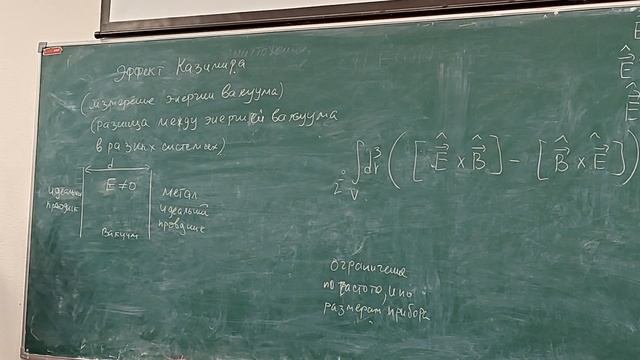 Эффект Казимира
(измерение энергии вакуума)
(разница между энергией вакуума
в разных системах)
d
E ≠ 0
вакуум
металл
идеальный
проводник
∫ d³r ( [ \hat{\vec{E}} × \hat{\vec{B}} ] − [ \hat{\vec{B}} × \hat{\vec{E}} ] )
V
ограничена
по частоте, и по
размерам прибора